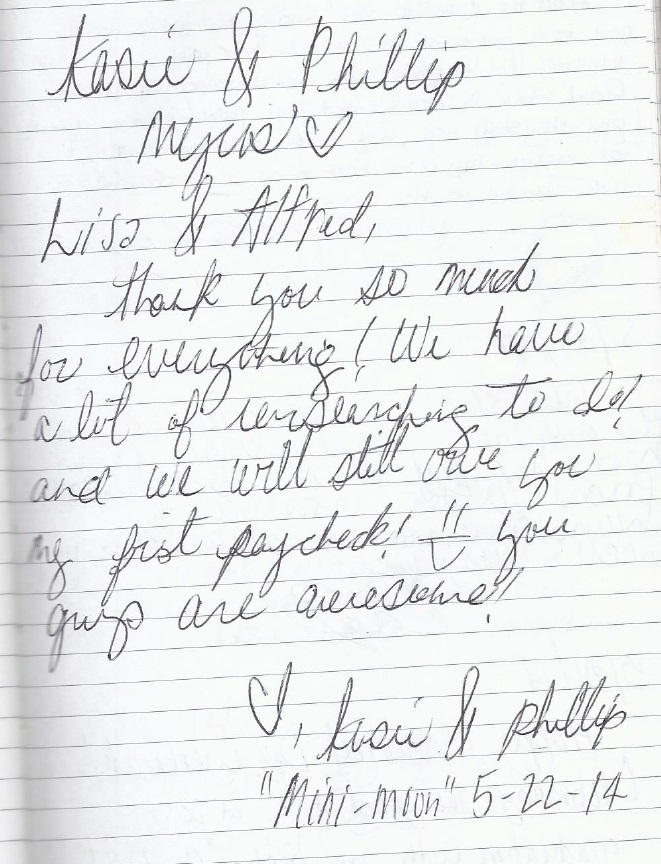 Kasie & Phillip
♡
Lisa & Alfred,
Thank you so much
for everything! We have
a lot of researching to do!
and we will still owe you
my first paycheck! you
guys are awesome!!
♡, Kasie & Phillip
"Mini-moon" 5-22-14